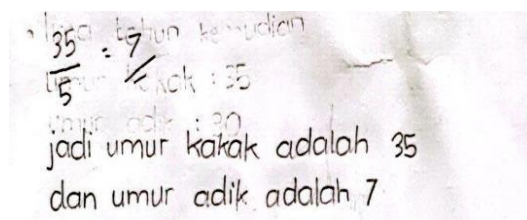 lima tahun kemudian
35/5 = 7
umur kakak : 35
umur adik : 30
jadi umur kakak adalah 35
dan umur adik adalah 7